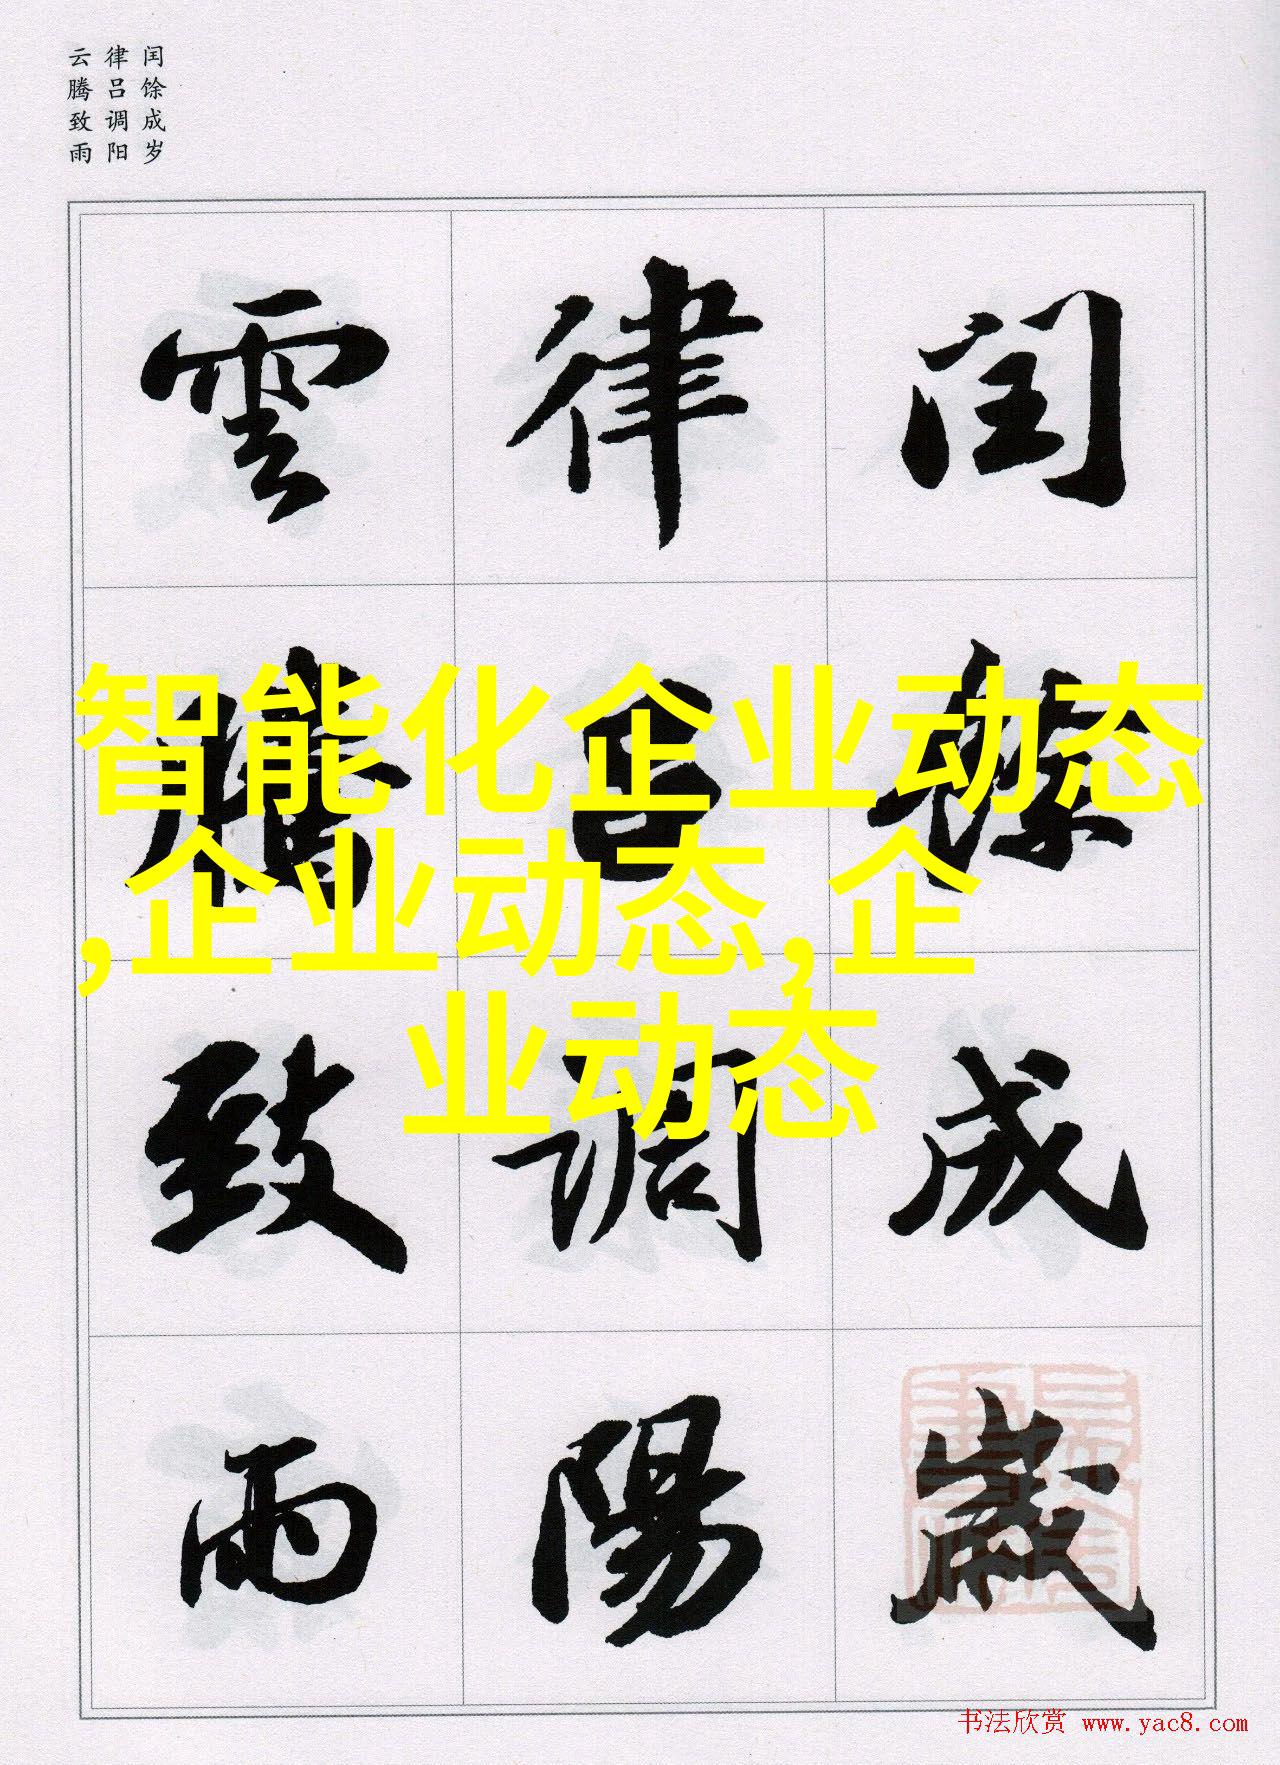 闰馀成岁
律吕调阳
云腾致雨
閏餘成歲
律吕調陽
雲騰致雨
智能化企业动态
,企业动态,企
业动态
书法欣赏 www.yac8.com